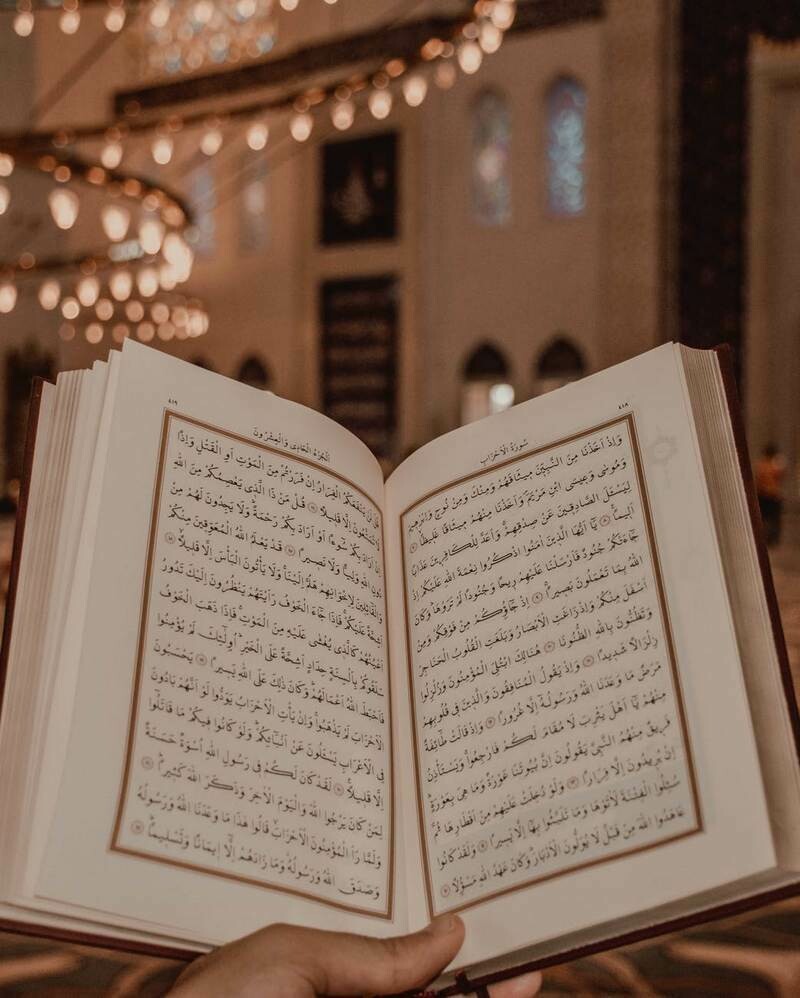 ٤١٨ سُورَةُ الْاَحْزَابِ
وَاِذْ اَخَذْنَا مِنَ النَّبِيّنَ مِيثَاقَهُمْ وَمِنْكَ وَمِنْ نُوحٍ وَاِبْرٰهِيمَ
وَمُوسٰى وَعِيسَى ابْنِ مَرْيَمَ وَاَخَذْنَا مِنْهُمْ مِيثَاقًا غَلِيظًا ٧
لِيَسْـَٔلَ الصَّادِقِينَ عَنْ صِدْقِهِمْ وَاَعَدَّ لِلْكَافِرِينَ عَذَابًا
اَلِيمًا ٨ يَا اَيُّهَا الَّذِينَ اٰمَنُوا اذْكُرُوا نِعْمَةَ اللّٰهِ عَلَيْكُمْ اِذْ
جَاءَتْكُمْ جُنُودٌ فَاَرْسَلْنَا عَلَيْهِمْ رِيحًا وَجُنُودًا لَمْ تَرَوْهَا وَكَانَ
اللّٰهُ بِمَا تَعْمَلُونَ بَصِيرًا ٩ اِذْ جَاؤُكُمْ مِنْ فَوْقِكُمْ وَمِنْ
اَسْفَلَ مِنْكُمْ وَاِذْ زَاغَتِ الْاَبْصَارُ وَبَلَغَتِ الْقُلُوبُ الْحَنَاجِرَ
وَتَظُنُّونَ بِاللّٰهِ الظُّنُونَا ١٠ هُنَالِكَ ابْتُلِيَ الْمُؤْمِنُونَ وَزُلْزِلُوا
زِلْزَالًا شَدِيدًا ١١ وَاِذْ يَقُولُ الْمُنَافِقُونَ وَالَّذِينَ فِي قُلُوبِهِمْ
مَرَضٌ مَا وَعَدَنَا اللّٰهُ وَرَسُولُهُ اِلَّا غُرُورًا ١٢ وَاِذْ قَالَتْ طَائِفَةٌ
مِنْهُمْ يَا اَهْلَ يَثْرِبَ لَا مُقَامَ لَكُمْ فَارْجِعُوا وَيَسْتَأْذِنُ
فَرِيقٌ مِنْهُمُ النَّبِيَّ يَقُولُونَ اِنَّ بُيُوتَنَا عَوْرَةٌ وَمَا هِيَ بِعَوْرَةٍ
اِنْ يُرِيدُونَ اِلَّا فِرَارًا ١٣ وَلَوْ دُخِلَتْ عَلَيْهِمْ مِنْ اَقْطَارِهَا ثُمَّ
سُئِلُوا الْفِتْنَةَ لَاٰتَوْهَا وَمَا تَلَبَّثُوا بِهَا اِلَّا يَسِيرًا ١٤ وَلَقَدْ كَانُوا
عَاهَدُوا اللّٰهَ مِنْ قَبْلُ لَا يُوَلُّونَ الْاَدْبَارَ وَكَانَ عَهْدُ اللّٰهِ مَسْؤُلًا ١٥
اَلْجُزْءُ الْحَادِى وَالْعِشْرُونَ ٤١٩
قُلْ لَنْ يَنْفَعَكُمُ الْفِرَارُ اِنْ فَرَرْتُمْ مِنَ الْمَوْتِ اَوِ الْقَتْلِ وَاِذًا
لَا تُمَتَّعُونَ اِلَّا قَلِيلًا ١٦ قُلْ مَنْ ذَا الَّذِي يَعْصِمُكُمْ مِنَ اللّٰهِ
اِنْ اَرَادَ بِكُمْ سُوءًا اَوْ اَرَادَ بِكُمْ رَحْمَةً وَلَا يَجِدُونَ لَهُمْ مِنْ
دُونِ اللّٰهِ وَلِيًّا وَلَا نَصِيرًا ١٧ قَدْ يَعْلَمُ اللّٰهُ الْمُعَوِّقِينَ مِنْكُمْ
وَالْقَائِلِينَ لِاِخْوَانِهِمْ هَلُمَّ اِلَيْنَا وَلَا يَأْتُونَ الْبَأْسَ اِلَّا قَلِيلًا ١٨
اَشِحَّةً عَلَيْكُمْ فَاِذَا جَاءَ الْخَوْفُ رَاَيْتَهُمْ يَنْظُرُونَ اِلَيْكَ تَدُورُ
اَعْيُنُهُمْ كَالَّذِي يُغْشٰى عَلَيْهِ مِنَ الْمَوْتِ فَاِذَا ذَهَبَ الْخَوْفُ
سَلَقُوكُمْ بِاَلْسِنَةٍ حِدَادٍ اَشِحَّةً عَلَى الْخَيْرِ اُولٰئِكَ لَمْ يُؤْمِنُوا
فَاَحْبَطَ اللّٰهُ اَعْمَالَهُمْ وَكَانَ ذٰلِكَ عَلَى اللّٰهِ يَسِيرًا ١٩ يَحْسَبُونَ
الْاَحْزَابَ لَمْ يَذْهَبُوا وَاِنْ يَأْتِ الْاَحْزَابُ يَوَدُّوا لَوْ اَنَّهُمْ بَادُونَ
فِي الْاَعْرَابِ يَسْـَٔلُونَ عَنْ اَنْبَائِكُمْ وَلَوْ كَانُوا فِيكُمْ مَا قَاتَلُوا
اِلَّا قَلِيلًا ٢٠ لَقَدْ كَانَ لَكُمْ فِي رَسُولِ اللّٰهِ اُسْوَةٌ حَسَنَةٌ
لِمَنْ كَانَ يَرْجُوا اللّٰهَ وَالْيَوْمَ الْاٰخِرَ وَذَكَرَ اللّٰهَ كَثِيرًا ٢١
وَلَمَّا رَاَ الْمُؤْمِنُونَ الْاَحْزَابَ قَالُوا هٰذَا مَا وَعَدَنَا اللّٰهُ وَرَسُولُهُ
وَصَدَقَ اللّٰهُ وَرَسُولُهُ وَمَا زَادَهُمْ اِلَّا اِيمَانًا وَتَسْلِيمًا ٢٢